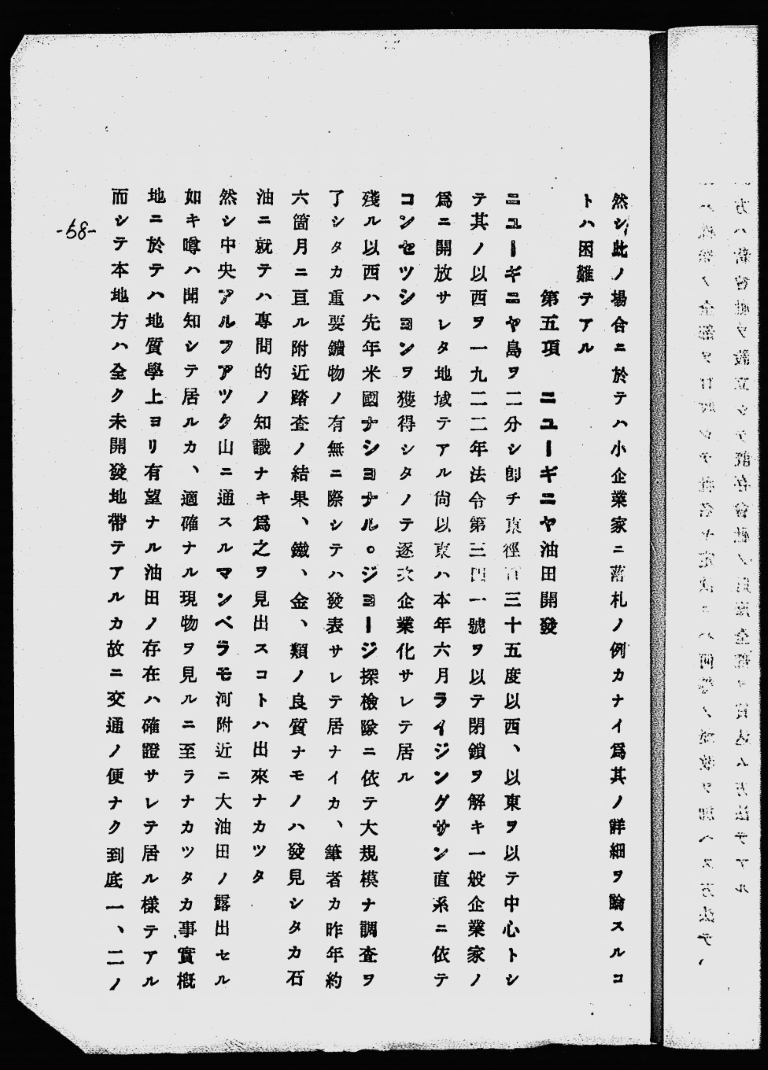 然シ此ノ場合ニ於テハ小企業家ニ落札ノ例カナイ爲其ノ詳細ヲ論スルコ
トハ困難テアル
第五項 ニユーギニヤ油田開發
ニユーギニヤ島ヲ二分シ卽チ東徑百三十五度以西、以東ヲ以テ中心トシ
テ其ノ以西ヲ一九二二年法令第三四一號ヲ以テ閉鎖ヲ解キ一般企業家ノ
爲ニ開放サレタ地域テアル尙以東ハ本年六月ライジングサン直系ニ依テ
コンセツシヨンヲ獲得シタノテ逐次企業化サレテ居ル
殘ル以西ハ先年米國ナシヨナル。ジヨージ探檢隊ニ依テ大規模ナ調査ヲ
了シタカ重要鑛物ノ有無ニ際シテハ發表サレテ居ナイカ、筆者カ昨年約
六箇月ニ亘ル附近踏査ノ結果、鐵、金、類ノ良質ナモノハ發見シタカ石
油ニ就テハ專間的ノ知識ナキ爲之ヲ見出スコトハ出來ナカツタ
然シ中央アルフアツタ山ニ通スルマンベラモ河附近ニ大油田ノ露出セル
如キ噂ハ聞知シテ居ルカ、適確ナル現物ヲ見ルニ至ラナカツタカ事實槪
地ニ於テハ地質學上ヨリ有望ナル油田ノ存在ハ確證サレテ居ル樣テアル
而シテ本地方ハ全ク未開發地帶テアルカ故ニ交通ノ便ナク到底一、二ノ
-58-